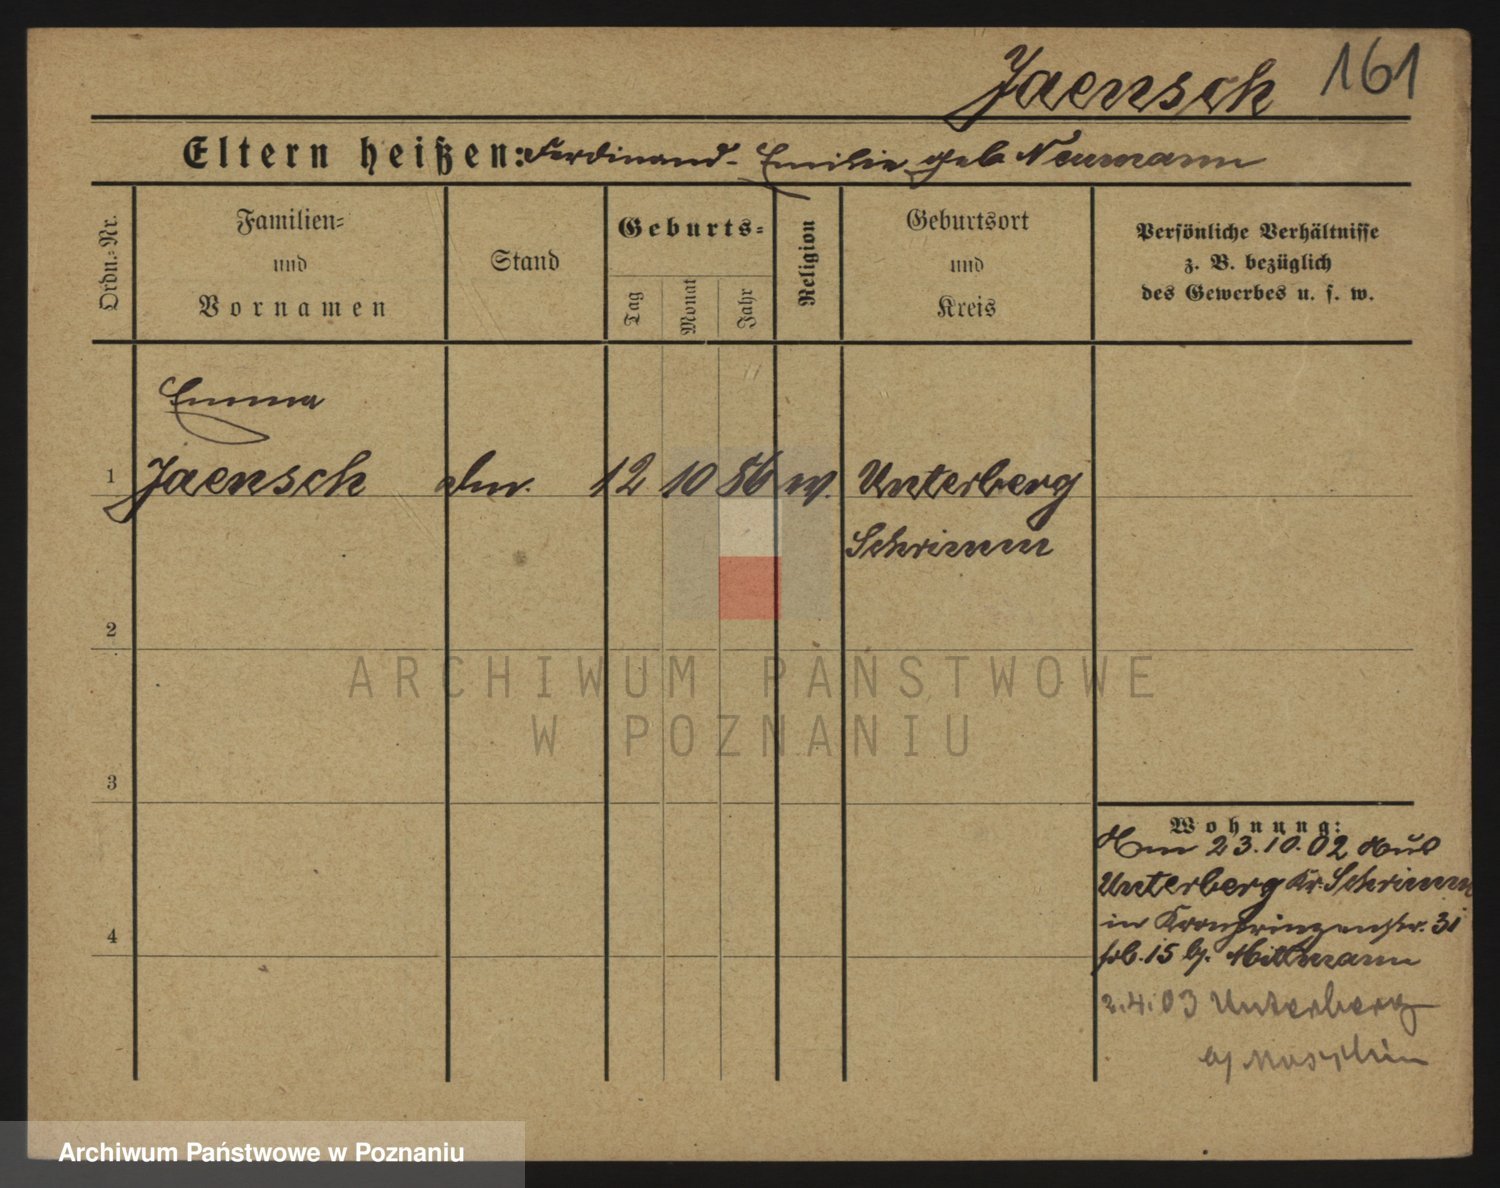 Jaensch 161
Eltern heißen: Ferdinand - Emilie geb Neumann
Ordn.-Nr.
Familien-
und
Vornamen
Stand
Geburts-
Tag
Monat
Jahr
Religion
Geburtsort
und
Kreis
Persönliche Verhältnisse
z. B. bezüglich
des Gewerbes u. s. w.
Emma
1 Jaensch dm. 12 10 86 w. Unterberg
Schrimm
2
3
4
Wohnung:
23.10.02 aus
Unterberg Kr. Schrimm
in Kronprinzenstr. 31
15 b. Mittmann
2.4.03 Unterberg
b/
ARCHIWUM PAŃSTWOWE
W POZNANIU
Archiwum Państwowe w Poznaniu